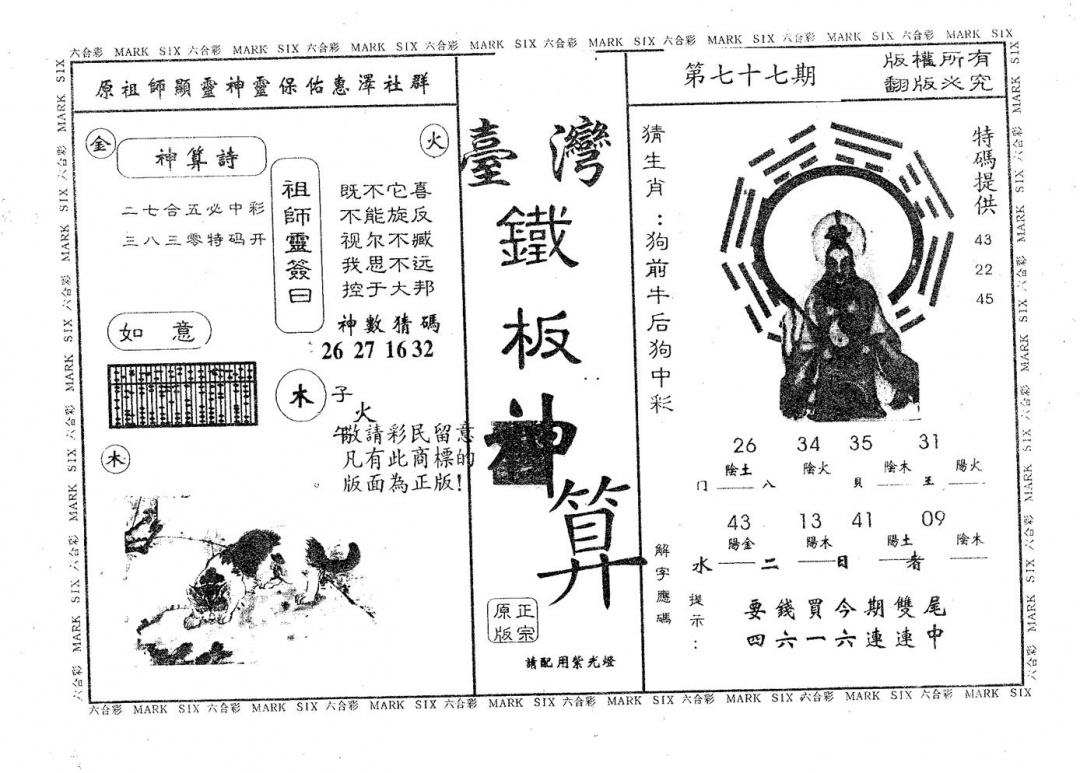 六合彩 MARK SIX 六合彩 MARK SIX 六合彩 MARK SIX 六合彩 MARK SIX 六合彩 MARK SIX 六合彩 MARK SIX 六合彩 MARK SIX 六合彩 MARK SIX
原祖師顯靈神靈保佑惠澤社群
金
火
神算詩
二七合五必中彩
三八三零特码开
祖師靈簽曰
既不它喜
不能旋反
视尔不臧
我思不远
控于大邦
神數猜碼
26 27 16 32
如意
木
子
火
午
敬請彩民留意
凡有此商標的
版面為正版!
木
臺灣
鐵
板
神
算
正宗
原版
請配用紫光燈
第七十七期
版權所有
翻版必究
猜生肖:狗前牛后狗中彩
特碼提供
43
22
45
26 34 35 31
陰土 陰火 陰木 陽火
门 八 貝 王
43 13 41 09
陽金 陽木 陽土 陰木
水 二 日 者
解字應碼
提示:
要錢買今期雙尾
四六一六連連中
六合彩 MARK SIX 六合彩 MARK SIX 六合彩 MARK SIX 六合彩 MARK SIX 六合彩 MARK SIX 六合彩 MARK SIX 六合彩 MARK SIX 六合彩 MARK SIX